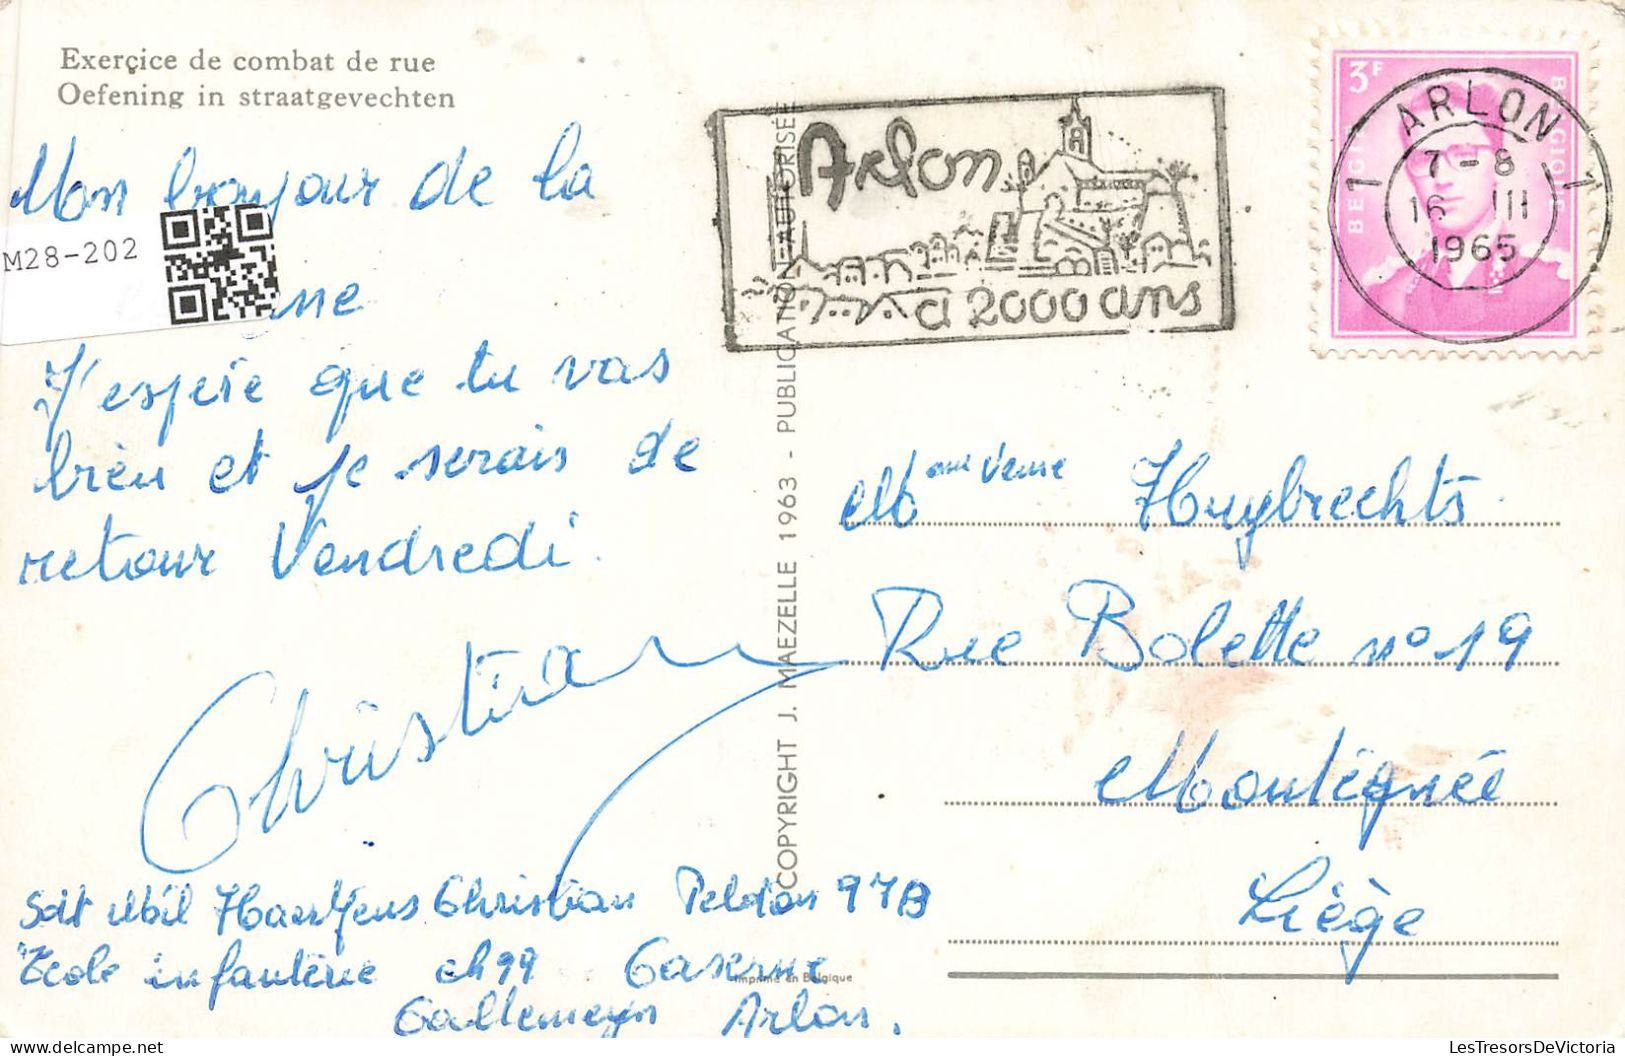 Exerçice de combat de rue
Oefening in straatgevechten
Mon bonjour de la
M28-202
J'espère que tu vas
bien et je serais de
retour Vendredi.
Christian
Sdt Mil Haerkens Christian Peldon 97B
Ecole infanterie ch 99 Caserne
Callemeyn Arlon.
COPYRIGHT J. MAEZELLE 1963 - PUBLICATION AUTORISÉE
Imprimé en Belgique
Arlon
a 2000 ans
3F
BELGIË
BELGIQUE
ARLON
1 1
7-8
16 III
1965
Mme Veuve Huybrechts.
Rue Bolette n° 19
Montégnée
Liège
LesTresorsDeVictoria